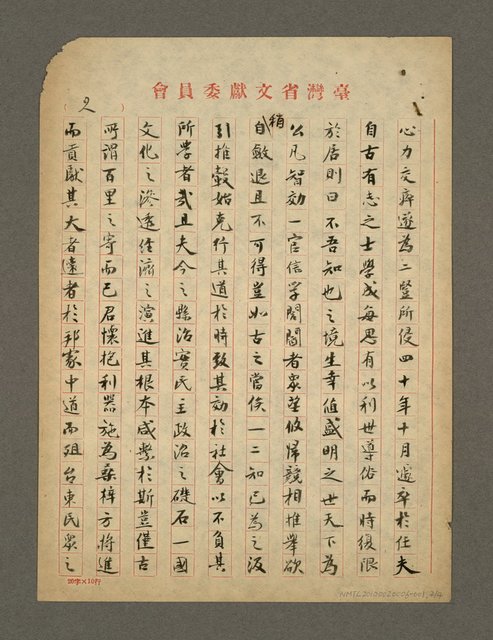 臺灣省文獻委員會
2
心力交瘁遂為二豎所侵四十年十月遽卒於任夫
自古有志之士學成每思有以利世導俗而時復限
於居則曰不吾知也之境生幸值盛明之世天下為
公凡智効一官信孚閭閻者眾望攸歸競相推舉欲
稍自斂退且不可得豈如古之當俟一二知己為之汲
引推轂始克行其道於時致其効於社會以不負其
所學者哉且夫今之縣治實民主政治之礎石一國
文化之滲透經濟之演進其根本咸繫於斯豈僅古
所謂百里之寄而已君懷抱利器施為桑梓方將進
而貢獻其大者遠者於邦家中道而殂台東民眾之
20字×10行